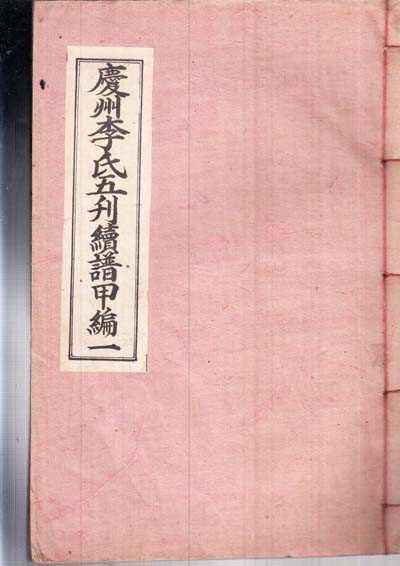 慶州李氏五刋續譜甲編一